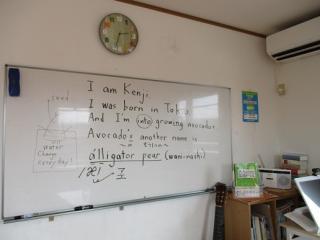 I am Kenji.
I was born in Tokyo.
And I'm into growing avocados
Avocado's another name is
álligator pear (wani-nashi)
/æ/
seed
water
Change
everyday!